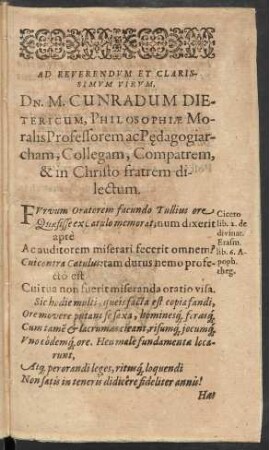 AD REVERENDVM ET CLARIS-
SIMVM VIRVM,
DN. M. CUNRADUM DIE-
TERICUM, PHILOSOPHIÆ Mo-
ralis Professorem ac Pedagogiar-
cham, Collegam, Compatrem,
& in Christo fratrem di-
lectum.
FVrvum Oratorem facundo Tullius ore
Quæsisse ex Catulo memorat, num dixerit
apte
Ac auditorem miserari fecerit omnem?
Cui contra Catulus: tam durus nemo profe-
cto est
Cui tua non fuerit miseranda oratio visa.
Sic hodie multi, queis facta est copia fandi,
Ore movere putant se saxa, homines, feras,
Cum tamē & lacrumas cieant, risumq, jocumq,
Vno eodemq, ore. Heu male fundamenta loca-
runt,
Atq, perorandi leges, ritusq, loquendi
Non satis in teneris didicêre fideliter annis!
Hac
Cicero
lib. 2. de
divinat.
Erasm.
lib. 6. A-
poph-
theg.